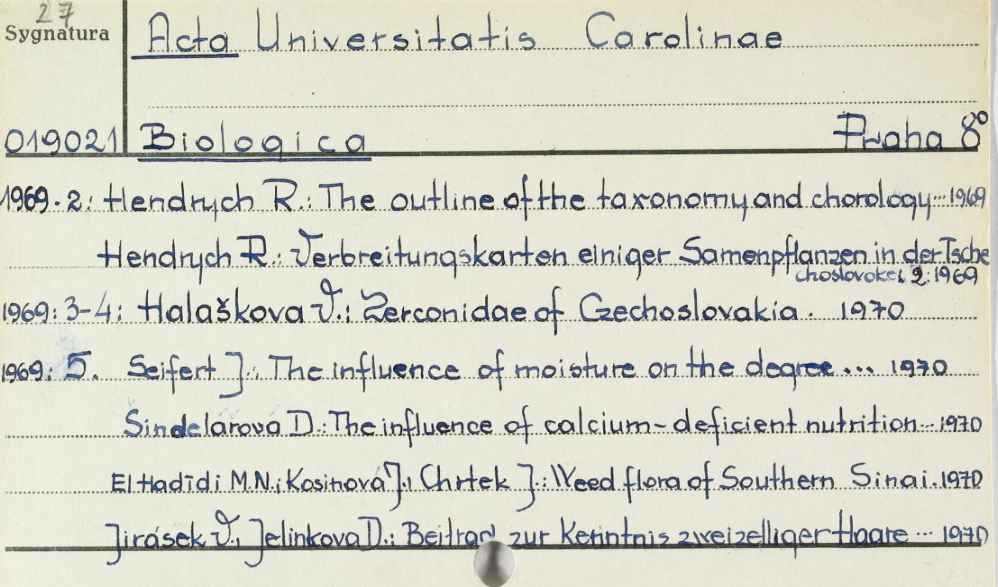 27
Sygnatura
Acta Universitatis Carolinae
019021 Biologica Praha 8°
1969.2: Hendrych R.: The outline of the taxonomy and chorology... 1969
Hendrych R.: Verbreitungskarten einiger Samenpflanzen in der Tsche
choslovakei 2:1969
1969: 3-4: Halaškova V.: Zerconidae of Czechoslovakia. 1970
1969: 5. Seifert J.: The influence of moisture on the degree... 1970
Sindelarova D.: The influence of calcium-deficient nutrition... 1970
El Hadidi M.N.; Kosinová J.; Chrtek J.: Weed flora of Southern Sinai. 1970
Jirásek V., Jelinkova D.: Beitrag zur Kenntnis zweizelliger Haare ... 1970